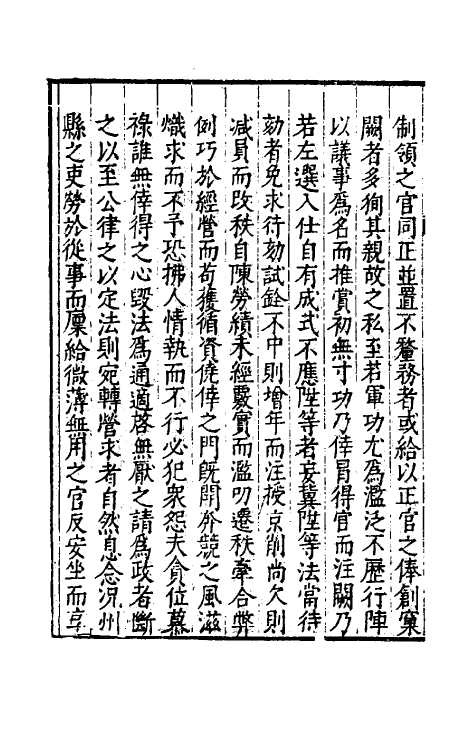 制領之官同正並置不釐務者或給以正官之俸創窠
闕者多狥其親故之私至若軍功尤為濫泛不歷行陣
以議事為名而推賞初無寸功乃倖冐得官而注闕乃
若左選入仕自有成式不應陞等者妄冀陞等法當待
劾者免求待劾試銓不中則增年而注授京削尚欠則
减員而改秩自陳勞績未經覈實而濫叨遷秩牽合弊
例巧扵經營而苟獲循資僥倖之門旣開奔競之風滋
熾求而不予恐拂人情執而不行必犯衆怨夫貪位慕
祿誰無倖得之心毀法為通適啓無厭之請為政者斷
之以至公律之以定法則宛轉營求者自然息念况州
縣之吏勞於從事而廩給微薄無用之官反安坐而享